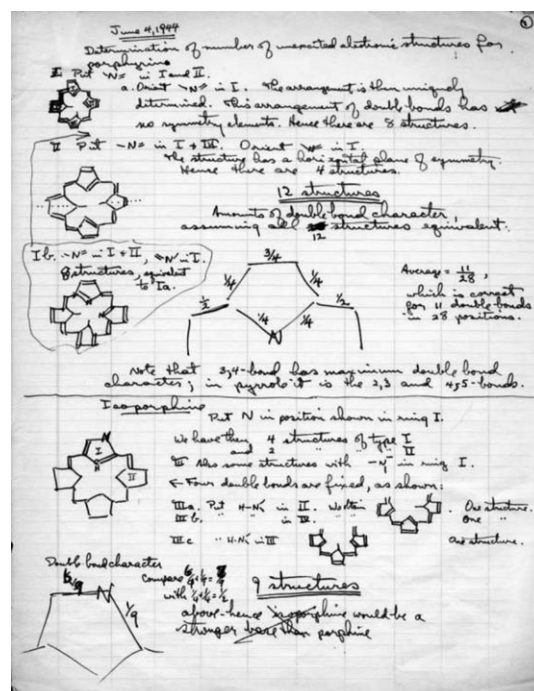 June 4, 1944
Determination of number of unexcited electronic structures for
porphyrins
I Put -N= in I and II.
a. Orient -N= in I. The arrangement is then uniquely
determined. This arrangement of double bonds has
no symmetry elements. Hence there are 8 structures.
II Put -N= in I + III. Orient -N= in I.
The structure has a horizontal plane of symmetry.
Hence there are 4 structures.
12 structures
Amounts of double bond character,
assuming all structures equivalent.
12
I b. -N= in I + II, =N- in I.
8 structures, equivalent
to Ia.
3/4
1/4
1/4
1/2
1/2
1/4
1/4
N
Average = 11/28,
which is correct
for 11 double bonds
in 28 positions.
Note that 3,4-bond has maximum double bond
character; in pyrrole it is the 2,3 and 4,5-bonds.
Isoporphine
Put N in position shown in ring I.
We have then 4 structures of type I
and 2 " " " II
III Also some structures with in ring I.
← Four double bonds are fixed, as shown:
IIIa. Put H-N in II. We then . One structure.
III b. " " in IV. One "
III c " H-N in III One structure.
I
II
N
Double bond character
Compare
with
9 structures
N
1/9
above-hence isoporphine would be a
stronger base than porphine